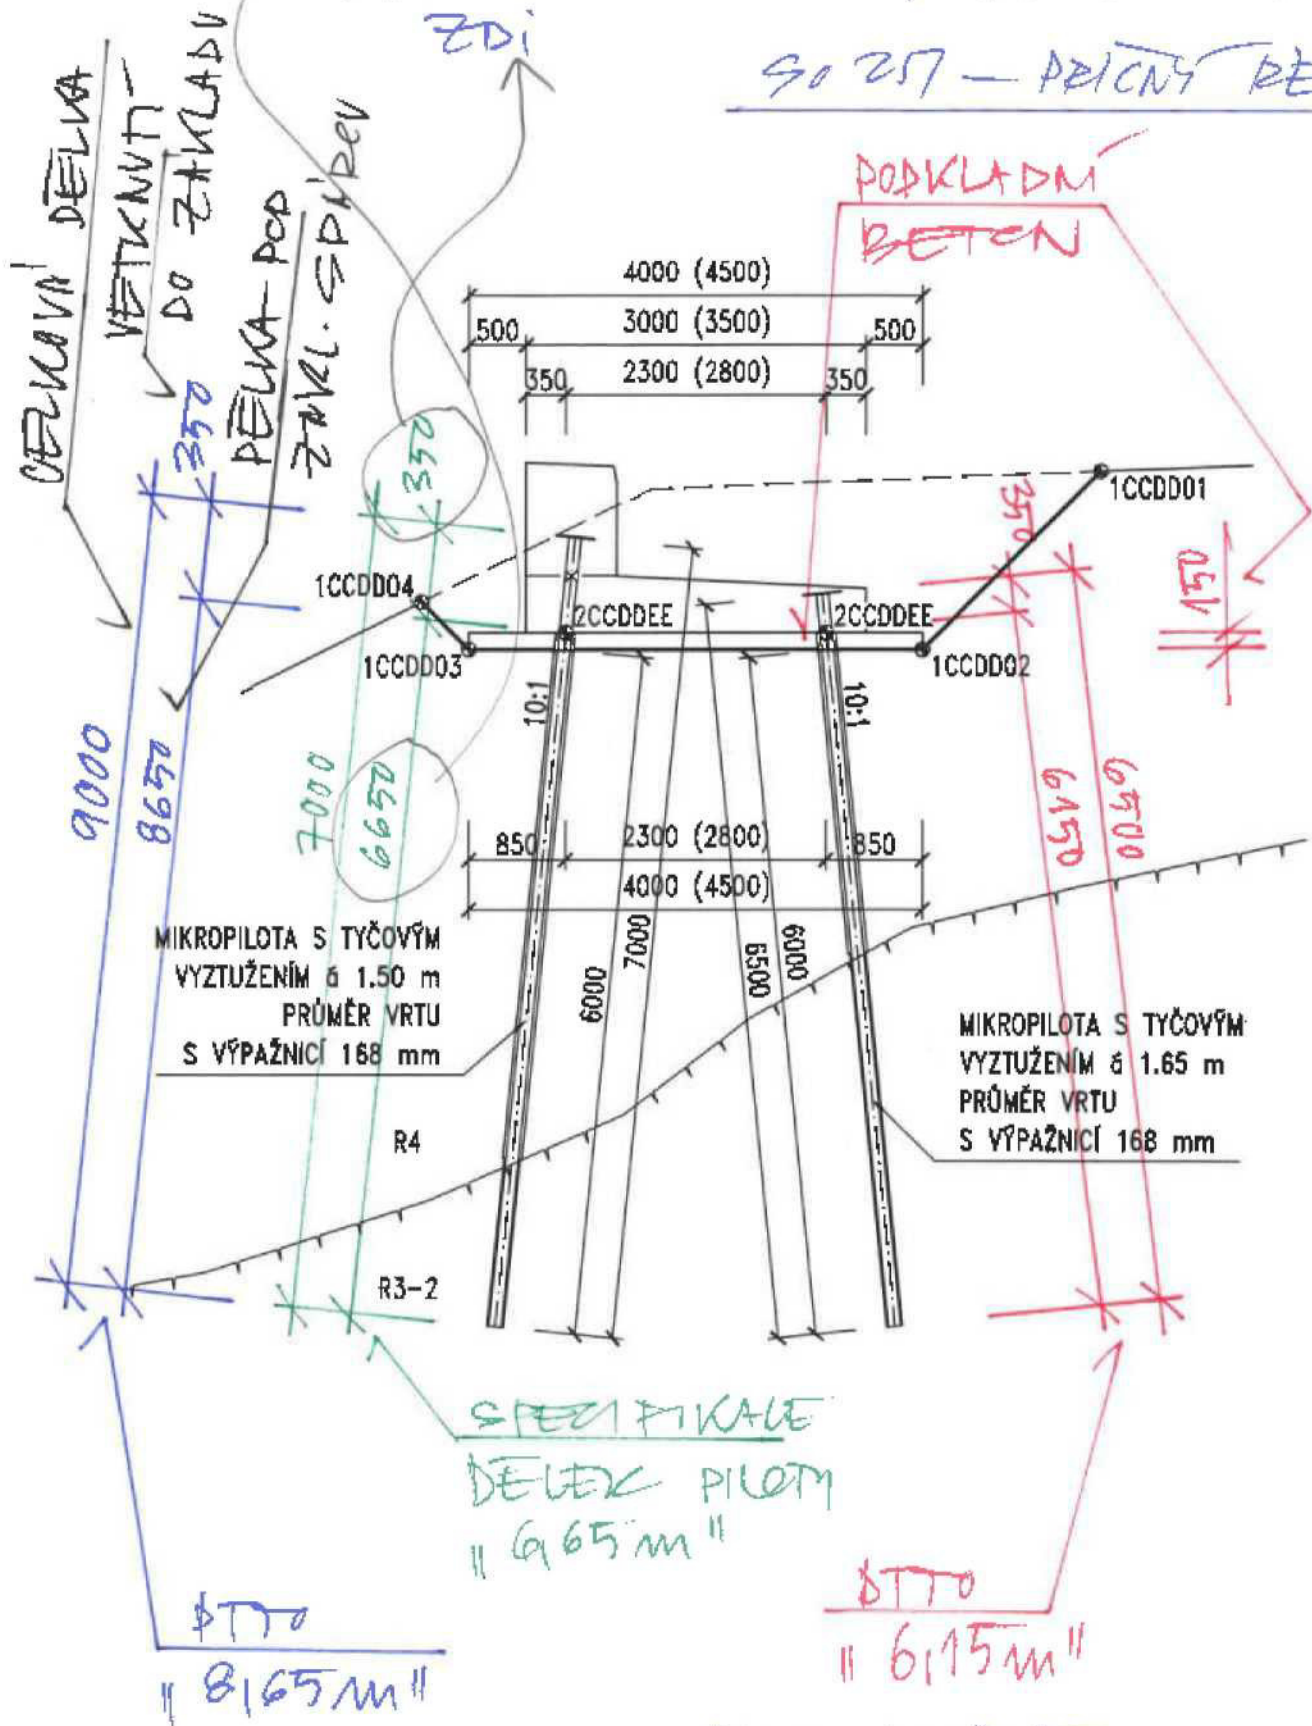 ZDÍ
SO 251 – PŘÍČNÝ ŘE
CELKOVÁ DÉLKA
VETKNUTÍ
DO ZÁKLADU
DÉLKA POD
ZÁKL. SPÁROU
PODKLADNÍ
BETON
4000 (4500)
500
3000 (3500)
500
350
2300 (2800)
350
350
350
350
150
1CCDD01
1CCDD04
2CCDDEE
2CCDDEE
1CCDD03
1CCDD02
10:1
10:1
9000
8650
7000
6650
6150
6500
850
2300 (2800)
850
4000 (4500)
6000
7000
6500
6000
MIKROPILOTA S TYČOVÝM
VYZTUŽENÍM á 1.50 m
PRŮMĚR VRTU
S VÝPAŽNICÍ 168 mm
MIKROPILOTA S TYČOVÝM
VYZTUŽENÍM á 1.65 m
PRŮMĚR VRTU
S VÝPAŽNICÍ 168 mm
R4
R3-2
SPECIFIKACE
DÉLEK PILOTY
"6,65 m"
DTTO
"8,65 m"
DTTO
"6,15 m"